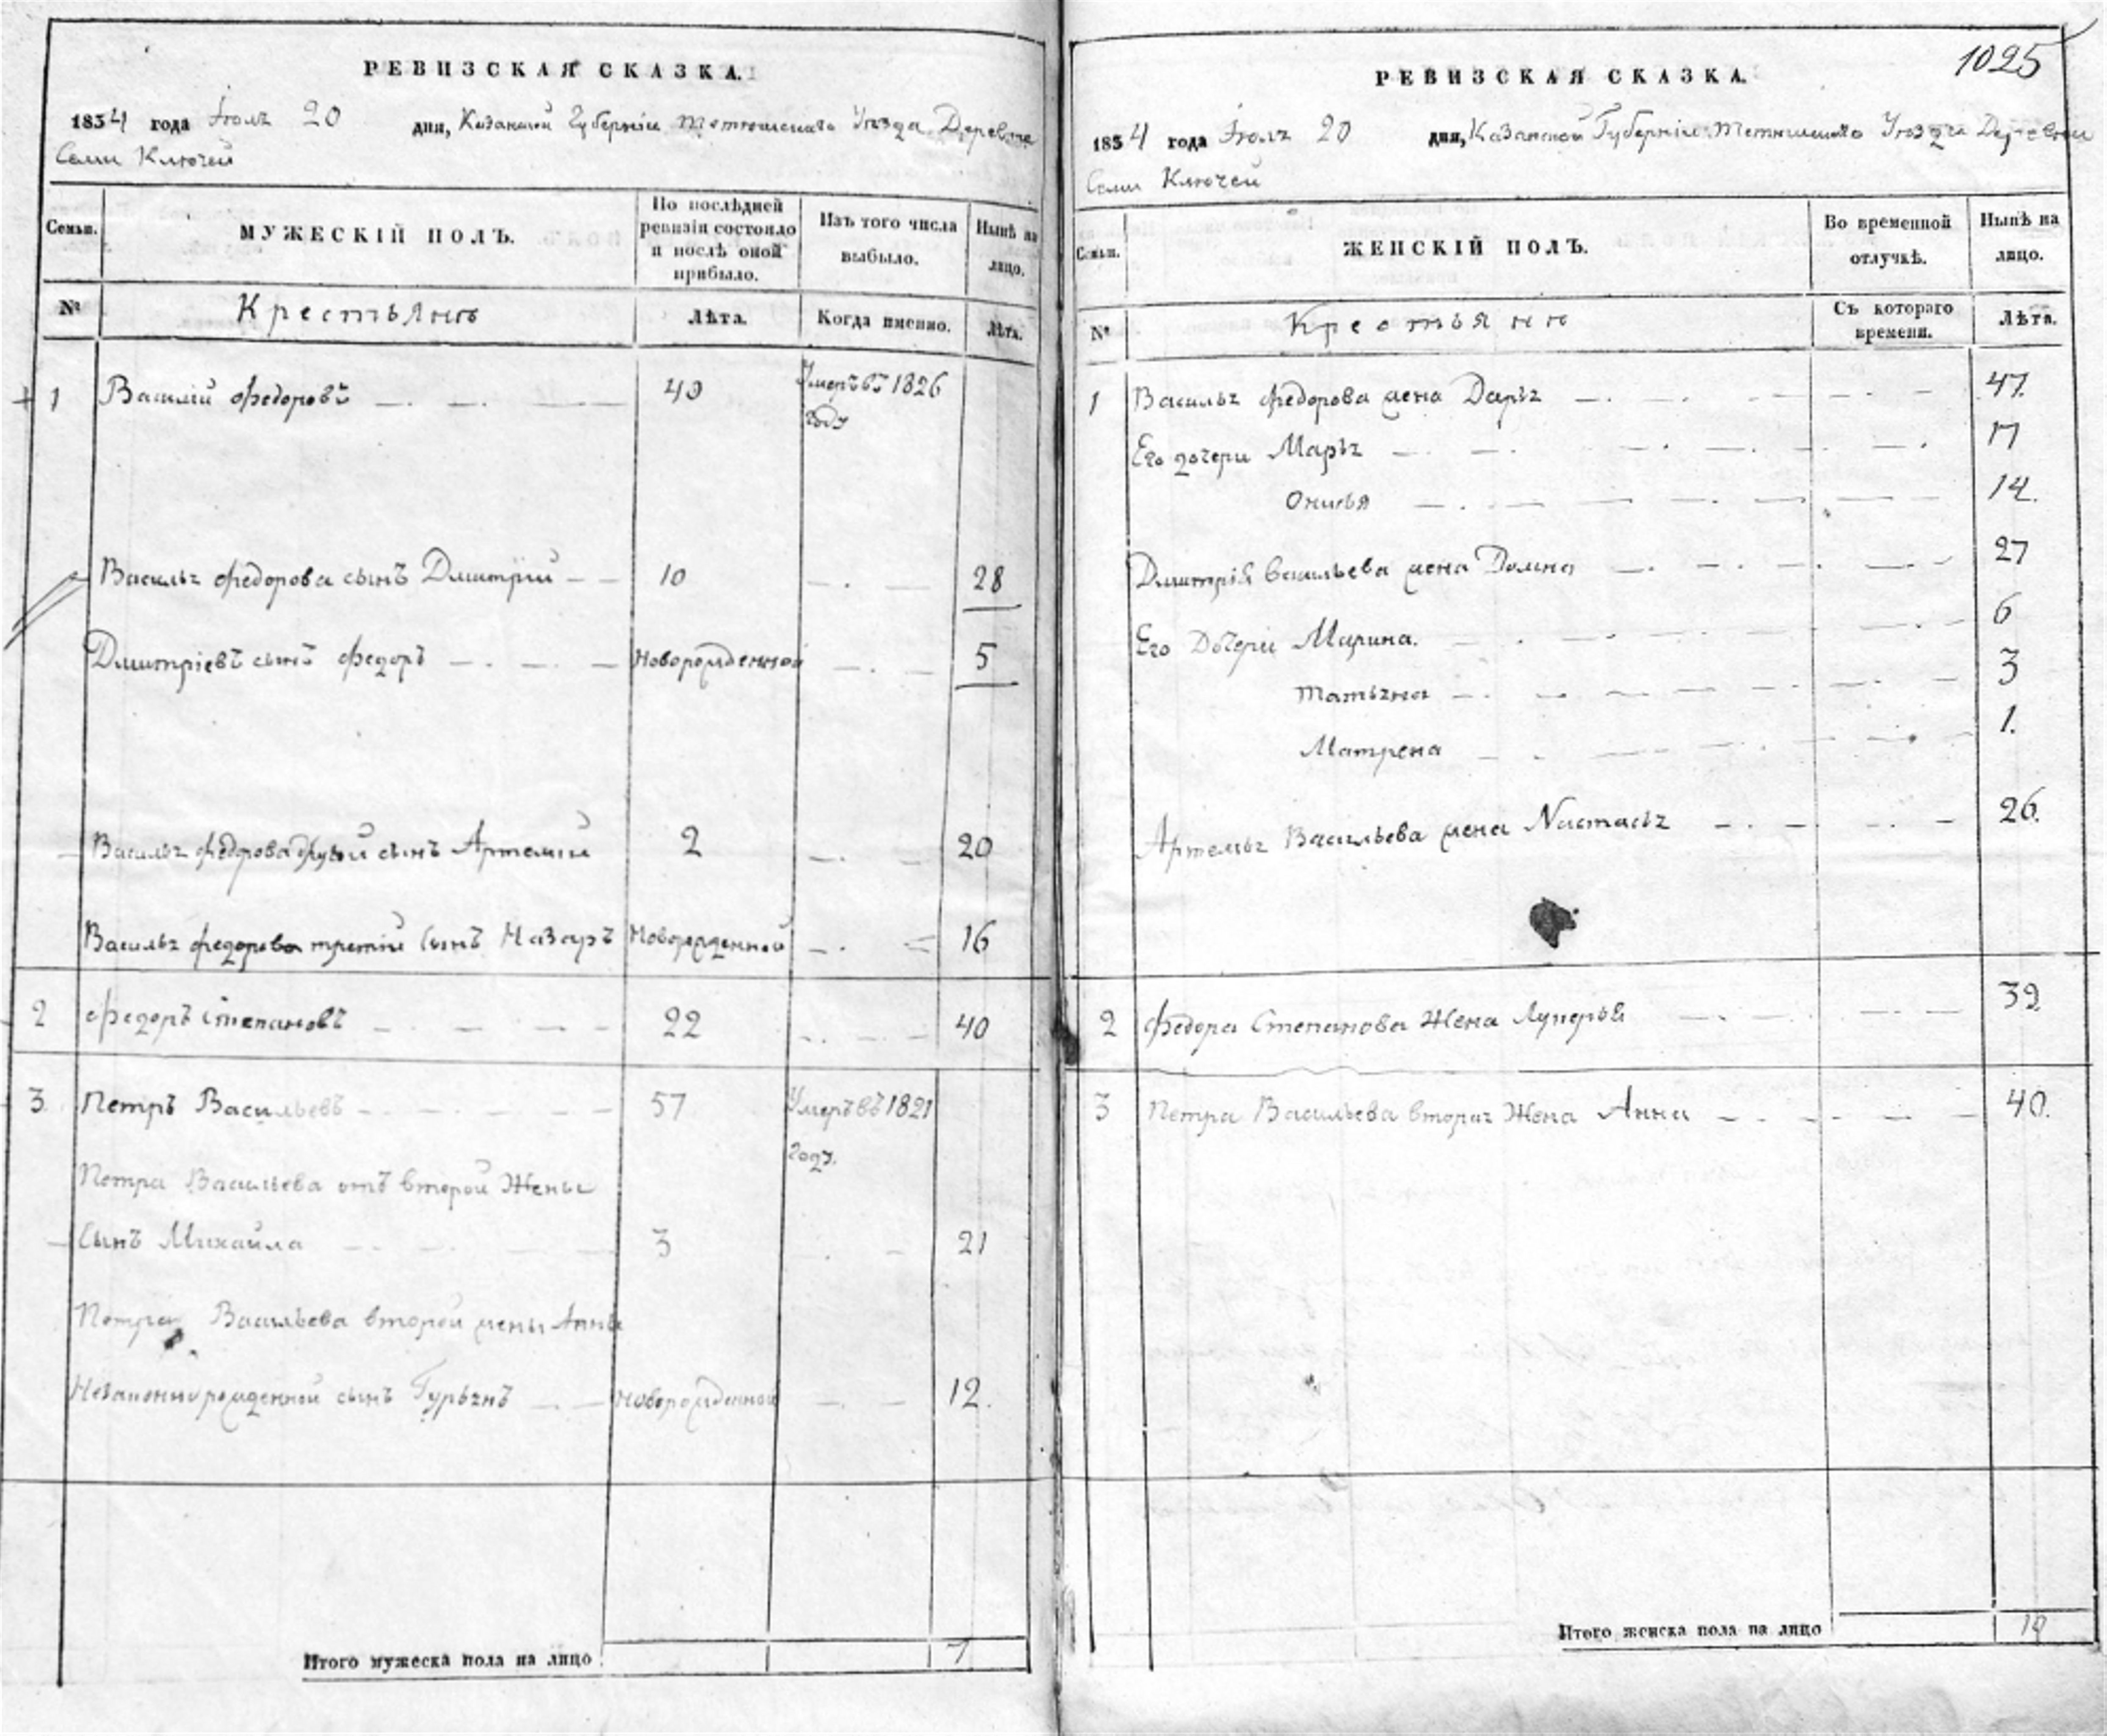 РЕВИЗСКАЯ СКАЗКА.
1834 года Июля 20 дня, Казанской Губерніи Тетюшскаго Уезда Деревне
Семи Ключей
Семьи.
МУЖЕСКІЙ ПОЛЪ.
По послѣдней ревизіи состояло и послѣ оной прибыло.
Изъ того числа выбыло.
Нынѣ на лицо.
№
Крестьяно
Лѣта.
Когда именно.
Лѣта.
1 Василій Федоровъ 49 Умеръ въ 1826
году
Василья Федорова сынъ Дмитрий 10 28
Дмитріевъ сынъ Федоръ Новорожденной 5
Василья Федорова другой сынъ Артемий 2 20
Василья Федорова третий сынъ Назаръ Новорожденной 16
2 Федоръ Степановъ 22 40
3 Петръ Васильевъ 57 Умеръ въ 1821
году.
Петра Васильева отъ второй жены
Сынъ Михайла 3 21
Петра Васильева второй жены Анны
Незаконнорожденной сынъ Гурьянъ Новорожденной 12.
Итого мужеска пола на лицо 7
1025
РЕВИЗСКАЯ СКАЗКА.
1834 года Июля 20 дня, Казанской Губерніи Тетюшскаго Уезда Деревни
Семи Ключей
Семьи.
ЖЕНСКІЙ ПОЛЪ.
Во временной отлучкѣ.
Нынѣ на лицо.
№
Крестьянки
Съ котораго времени.
Лѣта.
1 Василья Федорова жена Дарья 47.
Его дочери Марья 17
Онисья 14.
Дмитрія Васильева жена Домна 27
Его Дочери Марина. 6
Татьяна 3
Матрена 1.
Артемья Васильева жена Настасья 26.
2 Федора Степанова Жена Лукерья 39
3 Петра Васильева вторая Жена Анна 40.
Итого женска пола на лицо